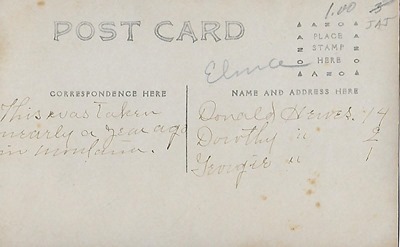 POST CARD
1.00
AZO
PLACE
STAMP
HERE
AZO
Elmce
CORRESPONDENCE HERE
NAME AND ADDRESS HERE
This was taken
nearly a year ago
in montana.
Donald Hewes. 4
Dorothy " 2
Georgie " 1